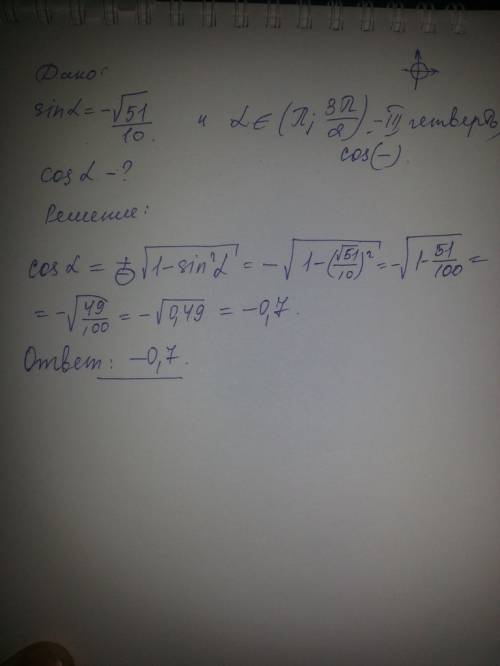 Дано:
sinα = -√51/10 и α ∈ (π; 3π/2) - III четверть,
cos(-).
cosα - ?
Решение:
cosα = ±√(1-sin²α) = -√(1-(√51/10)²) = -√(1-51/100) =
= -√(49/100) = -√0,49 = -0,7.
Ответ: -0,7.